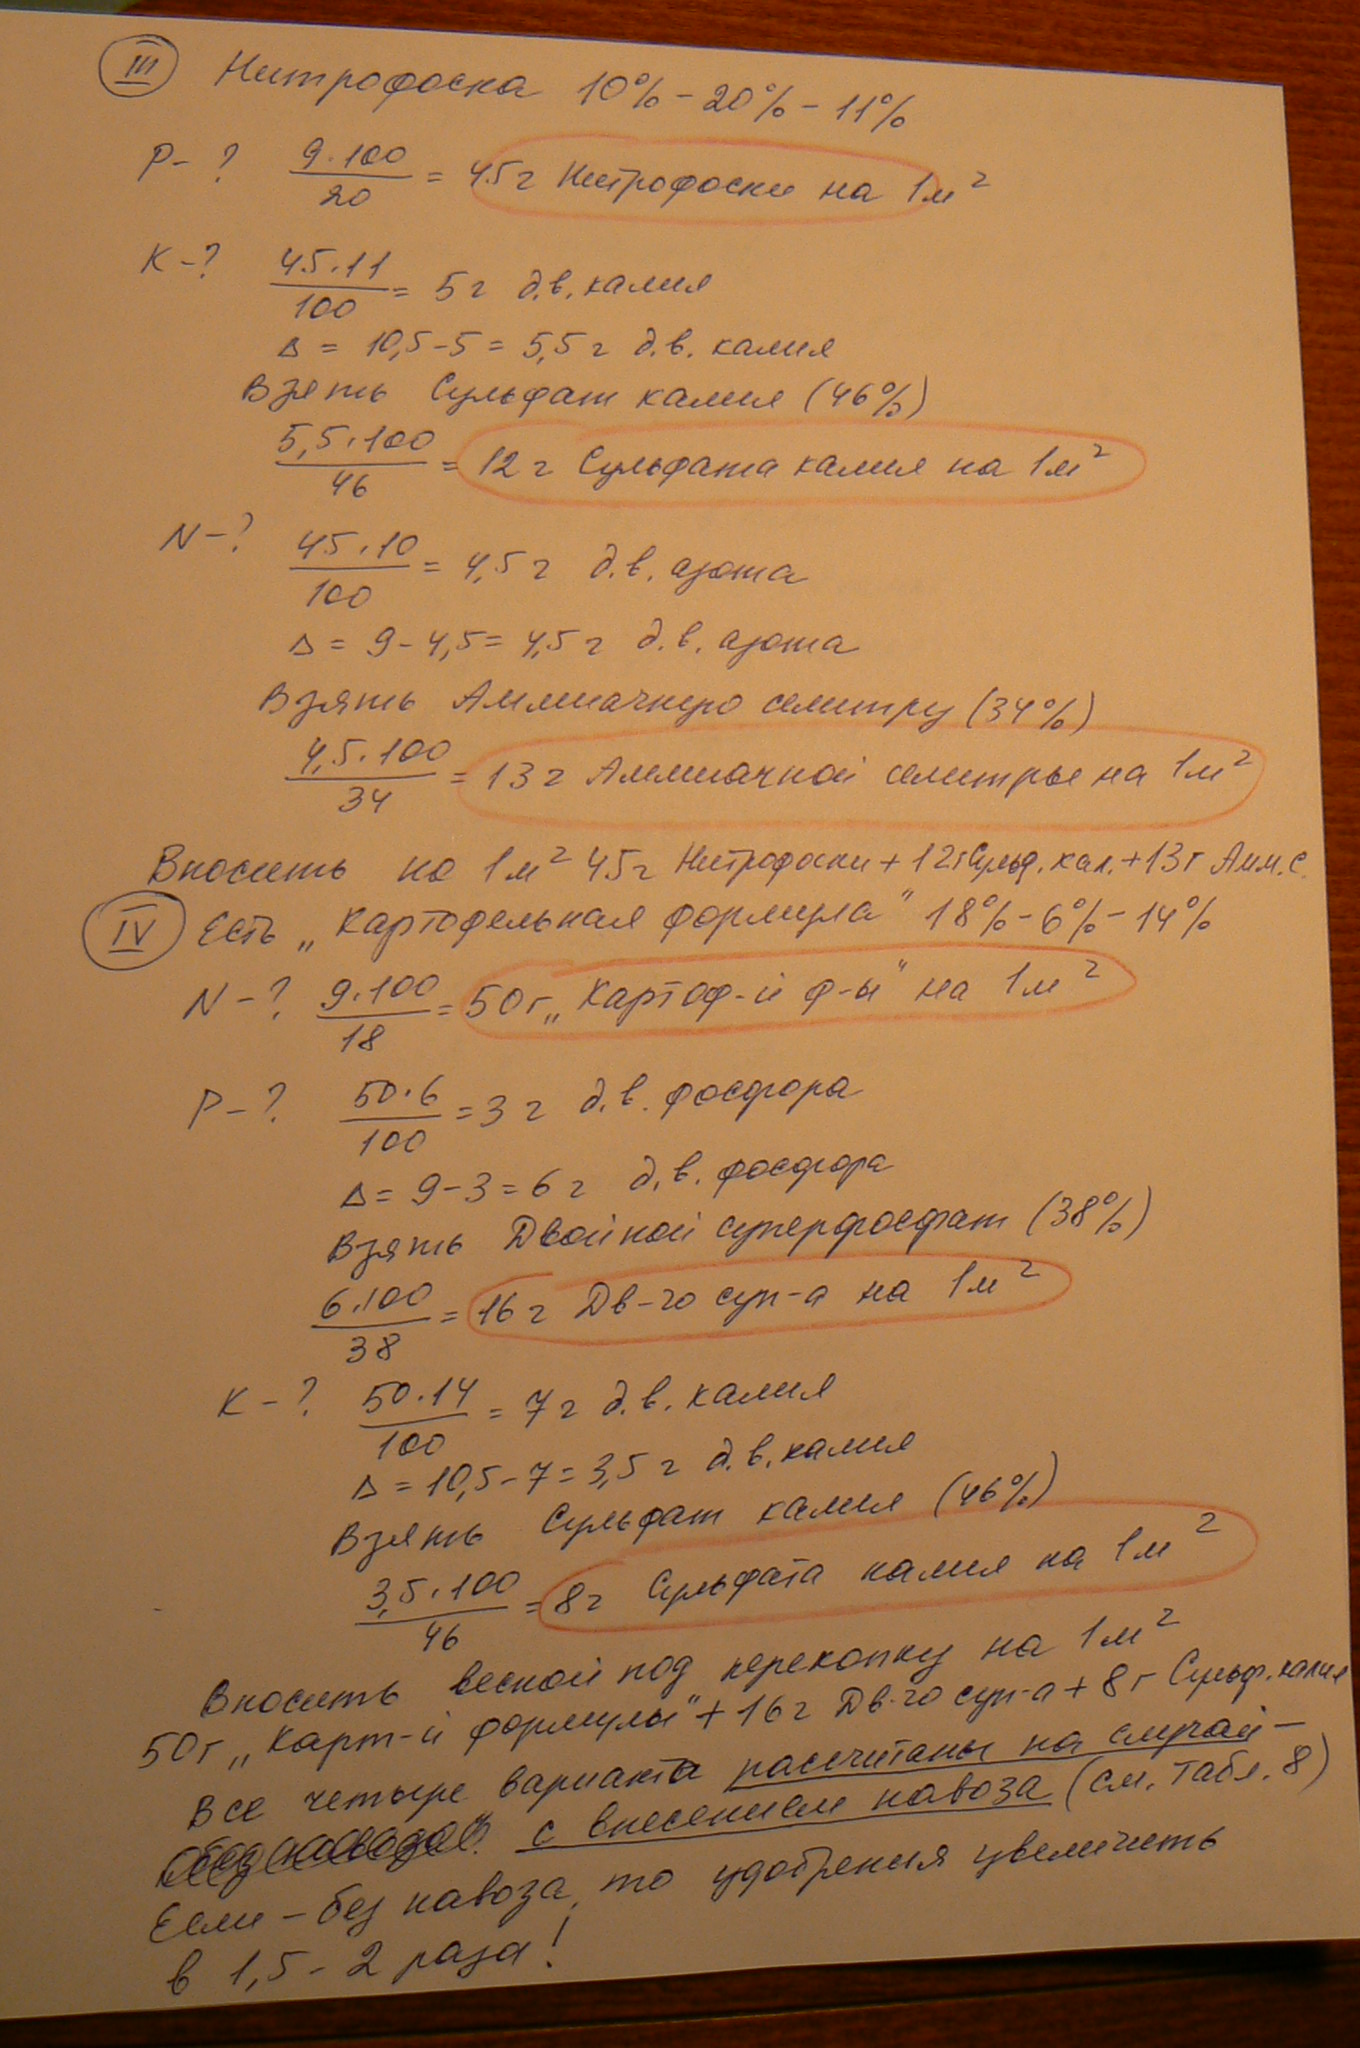 III Нитрофоска 10% - 20% - 11%
P - ? 9·100/20 = 45г Нитрофоски на 1м²
K - ? 45·11/100 = 5г д.в. калия
Δ = 10,5 - 5 = 5,5г д.в. калия
Взять Сульфат калия (46%)
5,5·100/46 = 12г Сульфата калия на 1м²
N - ? 45·10/100 = 4,5г д.в. азота
Δ = 9 - 4,5 = 4,5г д.в. азота
Взять Аммиачную селитру (34%)
4,5·100/34 = 13г Аммиачной селитры на 1м²
Вносить на 1м² 45г Нитрофоски + 12г Сульф. кал. + 13г Амм. с.
IV Есть „Картофельная формула" 18% - 6% - 14%
N - ? 9·100/18 = 50г „Картоф-й ф-ы" на 1м²
P - ? 50·6/100 = 3г д.в. фосфора
Δ = 9 - 3 = 6г д.в. фосфора
Взять Двойной суперфосфат (38%)
6·100/38 = 16г Дв-го суп-а на 1м²
K - ? 50·14/100 = 7г д.в. калия
Δ = 10,5 - 7 = 3,5г д.в. калия
Взять Сульфат калия (46%)
3,5·100/46 = 8г Сульфата калия на 1м²
Вносить весной под перекопку на 1м²
50г „Карт-й формулы" + 16г Дв-го суп-а + 8г Сульф. калия
Все четыре варианта рассчитаны на случай -
с внесением навоза (см. табл. 8)
Если - без навоза, то удобрения увеличить
в 1,5 - 2 раза!